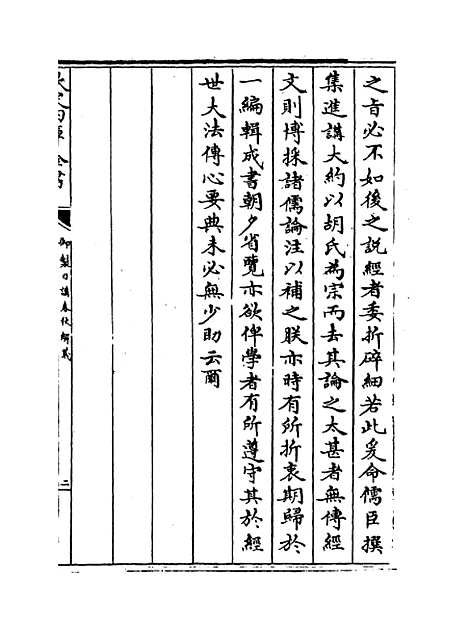 之旨必不如後之說經者委折碎細若此爰命儒臣撰
集進講大約以胡氏為宗而去其論之太甚者無傳經
文則博採諸儒論注以補之朕亦時有所折衷期歸於
一編輯成書朝夕省覽亦欲俾學者有所遵守其於經
世大法傳心要典未必無少助云爾
欽定四庫全書
御製日講春秋解義
二